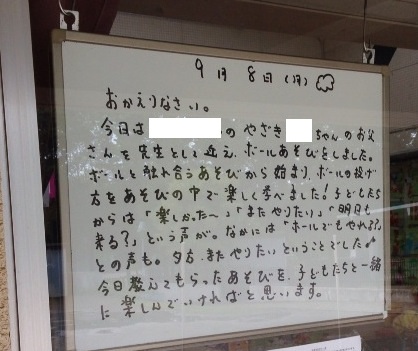 9月 8日(月)
おかえりなさい。
今日は のやざき ちゃんのお父
さんを先生として迎え、ボールあそびをしました。
ボールと触れ合うあそびから始まり、ボールの投げ
方をあそびの中で楽しく学べました！子どもたち
からは「楽しかった〜」「またやりたい」「明日も
来る？」という声が。なかには「ホールでもやれる？」
との声も。夕方、またやりたいということでした。
今日教えてもらったあそびを、子どもたちと一緒
に楽しんでいければと思います。